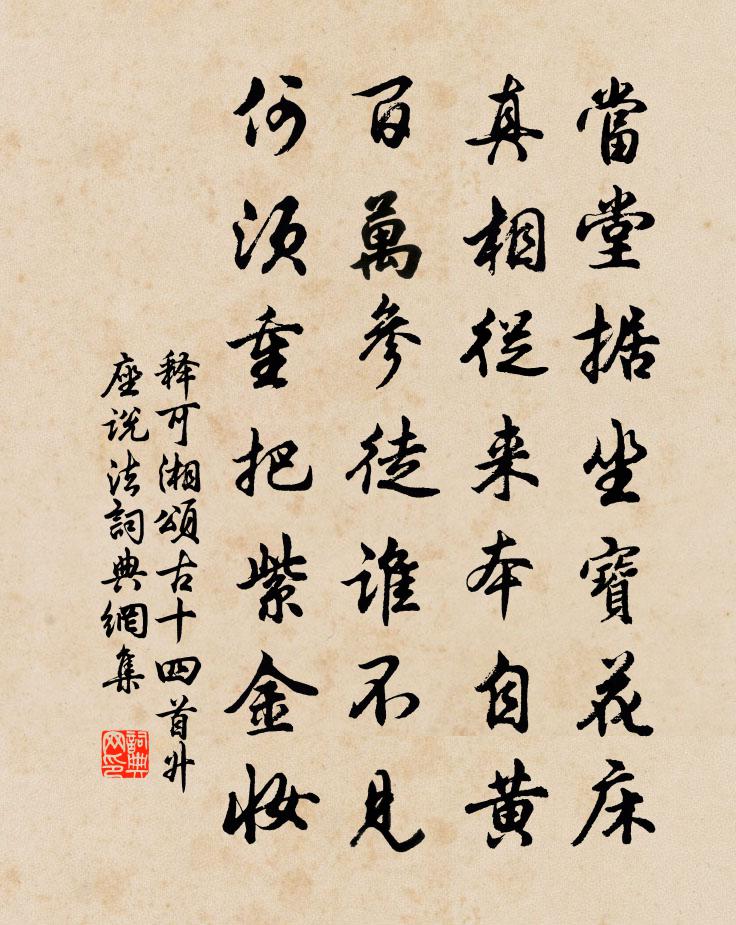 當堂据坐寶花床
真相從来本自黄
百萬參徒誰不見
何須重把紫金妝
释可湘頌古十四首升
座説法詞典網集
詞典
网印